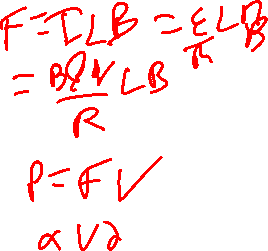 F = ILB = ε/R LB
= BlV/R LB
P = FV
∝ V2